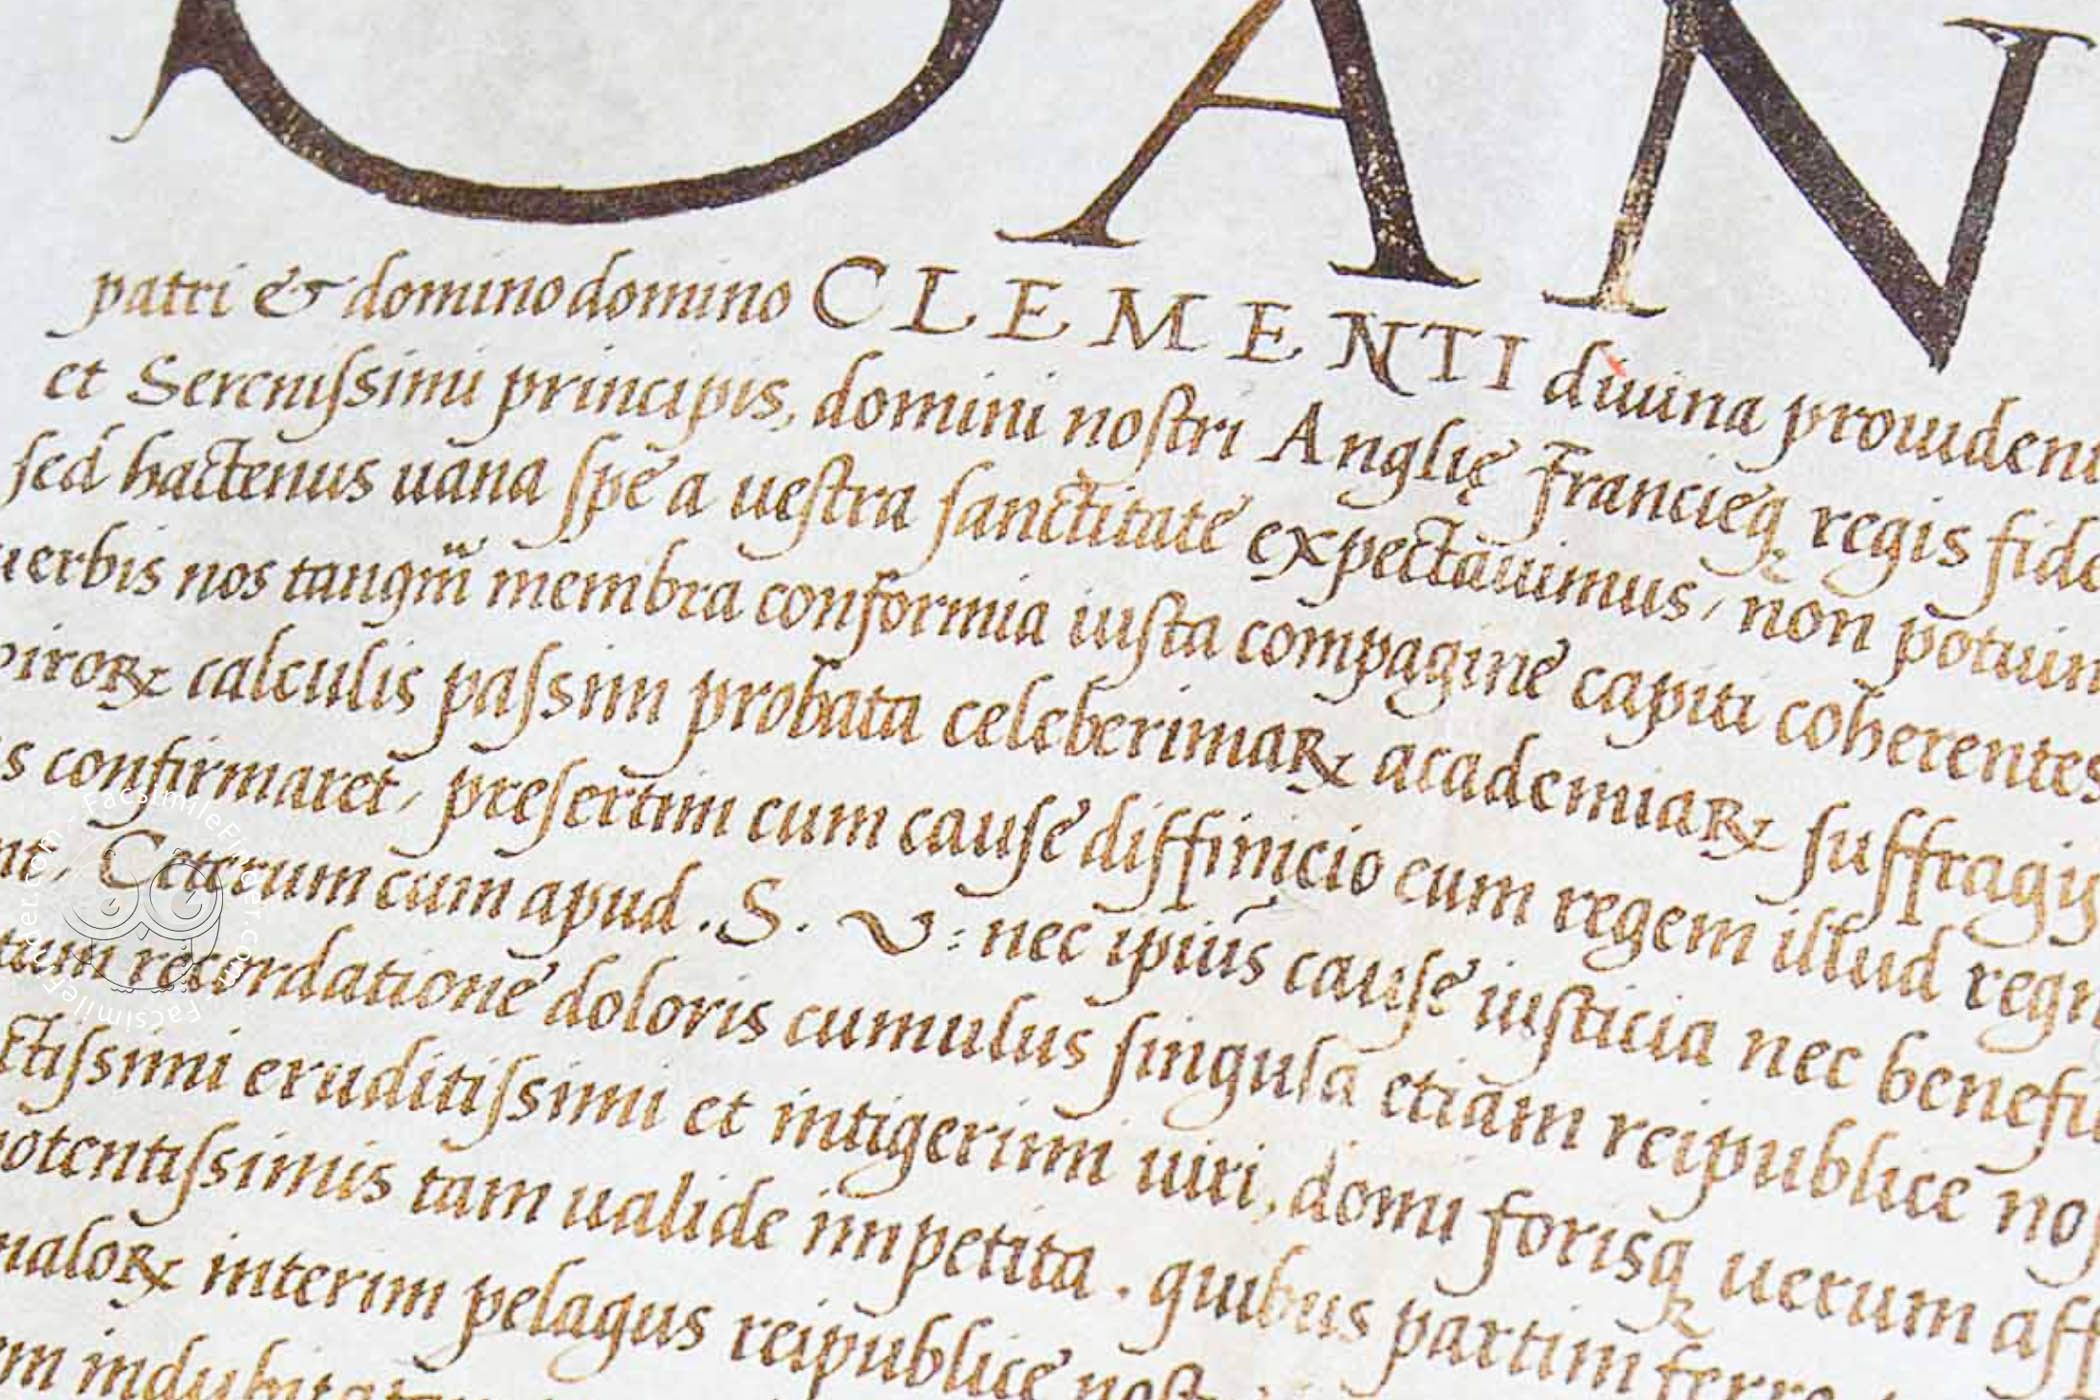 SAN
patri & domino domino CLEMENTI diuina prouident
et Serenißimi principis, domini nostri Anglię Francieq regis fide
sed hactenus uana spe a uestra sanctitate expectauimus, non potuim
uerbis nos tanqm membra conformia iusta compagine capiti coherentes
uiroꝝ calculis passim probata celeberimaꝝ academiaꝝ suffragijs
s confirmaret, presertim cum cause diffinicio cum regem illud regn
nt, Ceterum cum apud .S. V: nec ipius causę iusticia nec benefi
tum recordatione doloris cumulus singula etiam reipublice nos
ctissimi eruditissimi et intigerimi uiri, domi forisq uerum aff
potentissimis tam ualide impetita. quibus partim ferro
maloꝝ interim pelagus reipublice nost
m indubitatam
FacsimileFinder.com - FacsimileFinder.com